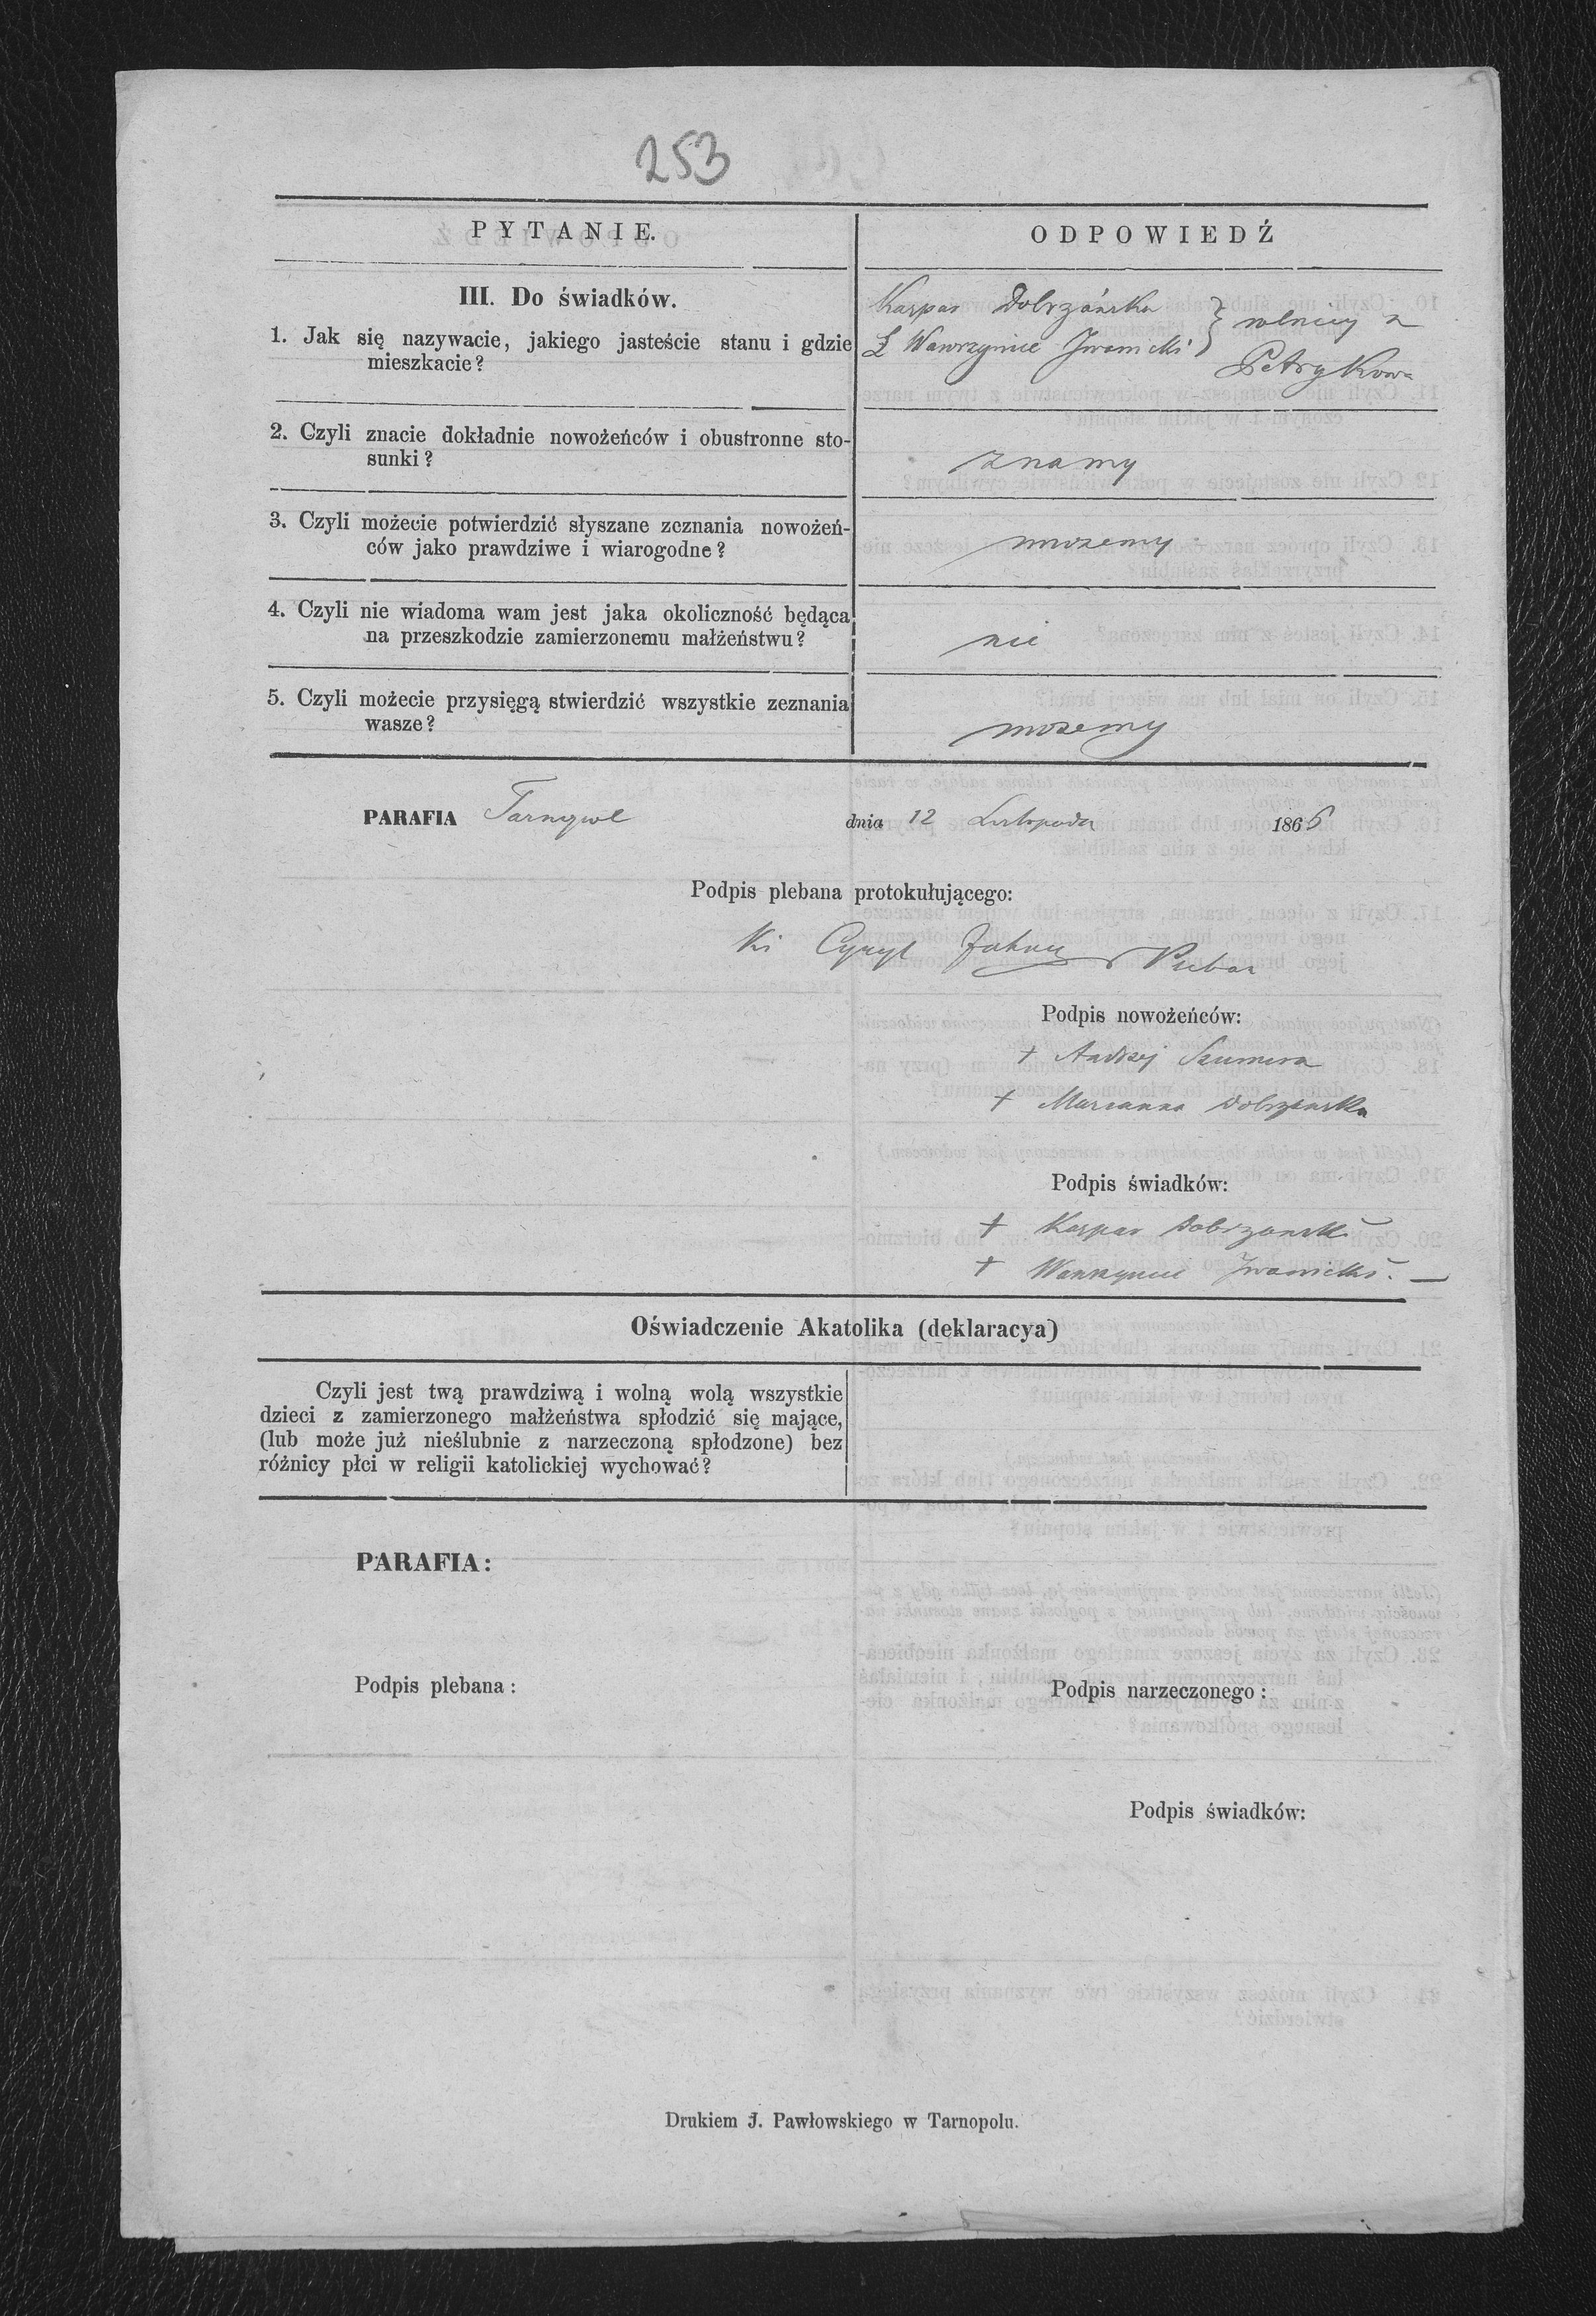 253
PYTANIE.
ODPOWIEDŹ
III. Do świadków.
1. Jak się nazywacie, jakiego jasteście stanu i gdzie
mieszkacie?
Kasper Dobrzański
Wawrzyniec Iwanicki } rolnicy z
Petrykowa
2. Czyli znacie dokładnie nowożeńców i obustronne sto-
sunki?
znamy
3. Czyli możecie potwierdzić słyszane zeznania nowożeń-
ców jako prawdziwe i wiarogodne?
mozemy
4. Czyli nie wiadoma wam jest jaka okoliczność będąca
na przeszkodzie zamierzonemu małżeństwu?
nie
5. Czyli możecie przysięgą stwierdzić wszystkie zeznania
wasze?
mozemy
PARAFIA Tarnopol dnia 12 Listopada 1866
Podpis plebana protokułującego:
Cyryl
Podpis nowożeńców:
+ Andrzej Szumera
+ Marianna Dobrzańska
Podpis świadków:
+ Kasper Dobrzański
+ Wawrzyniec Iwanicki. —
Oświadczenie Akatolika (deklaracya)
Czyli jest twą prawdziwą i wolną wolą wszystkie
dzieci z zamierzonego małżeństwa spłodzić się mające,
(lub może już nieślubnie z narzeczoną spłodzone) bez
różnicy płci w religii katolickiej wychować?
PARAFIA:
Podpis plebana:
Podpis narzeczonego:
Podpis świadków:
Drukiem J. Pawłowskiego w Tarnopolu.